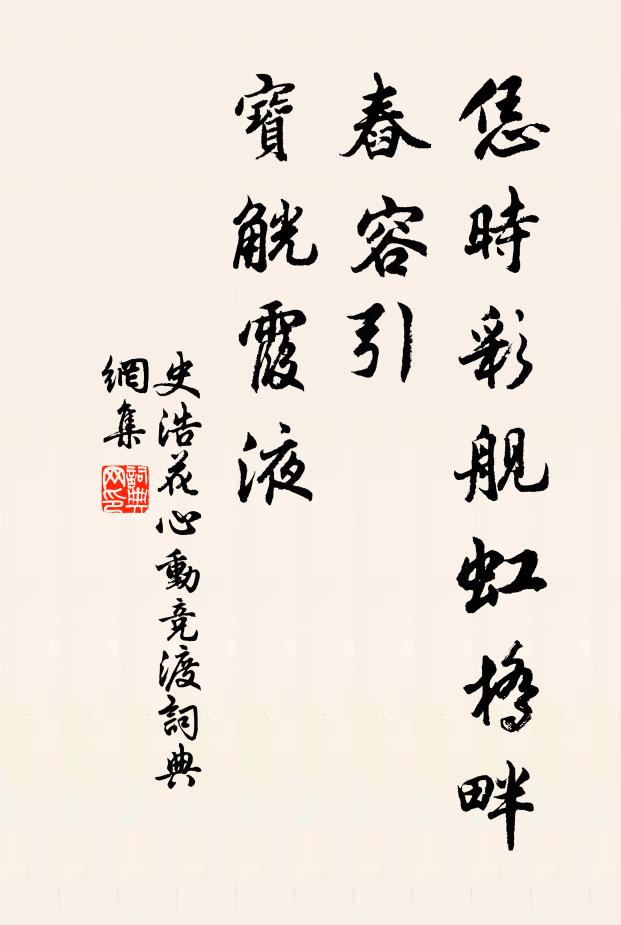 恁時彩舰虹橋畔
舂容引
寶觥霞液
史浩花心動竞渡詞典
網集
詞典
网印